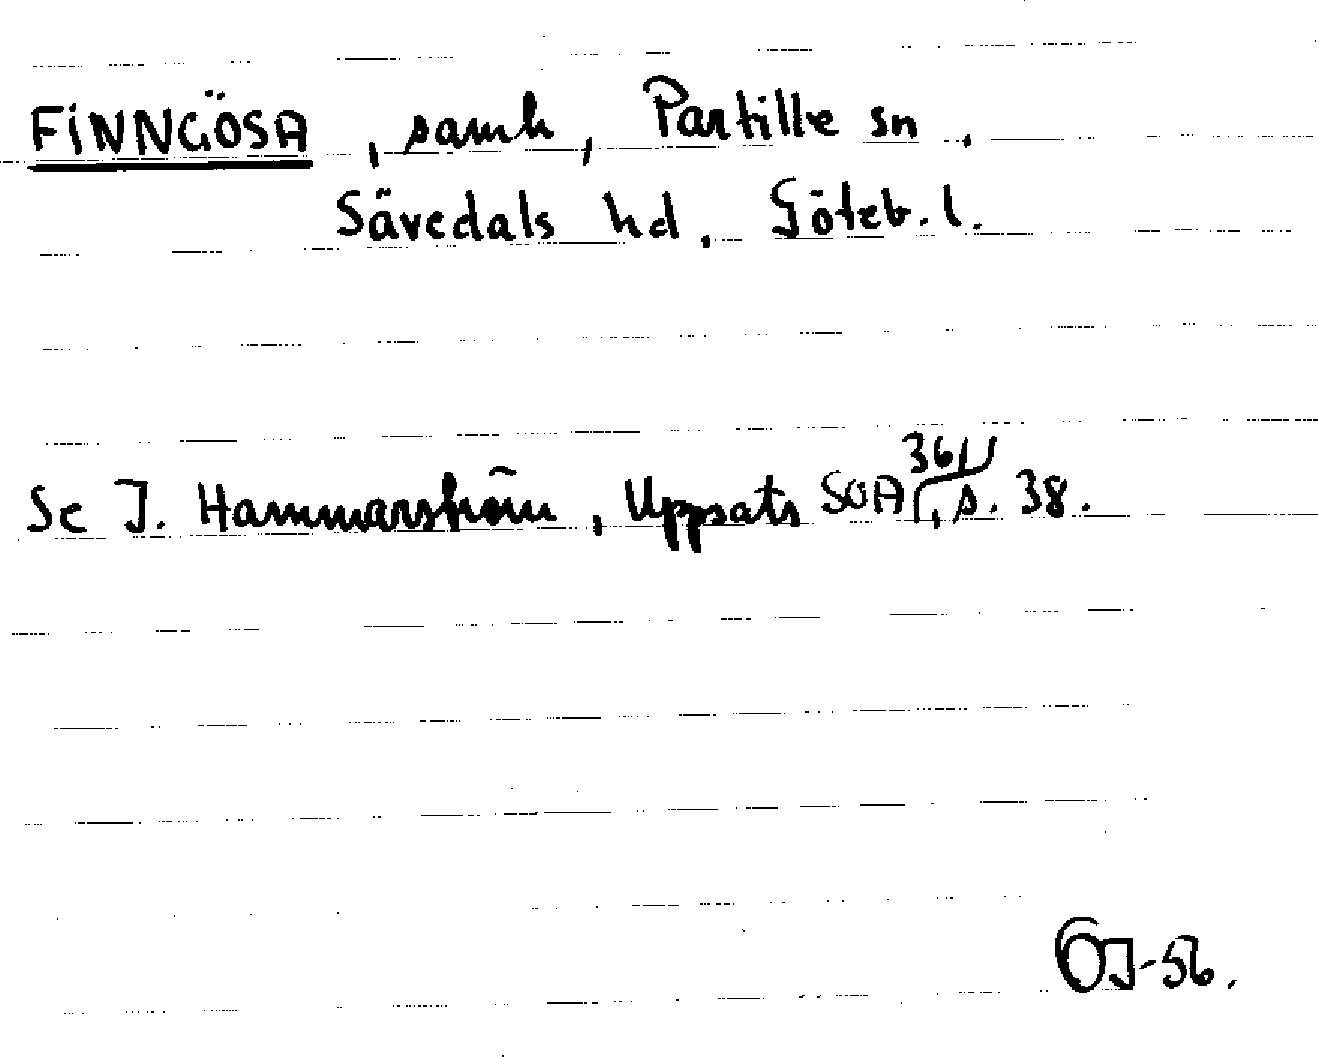 FINNGÖSA, samh, Partille sn.
Sävedals hd. Göteb. l.
Se I. Hammarström, Uppsats SOA 3611, s. 38.
ÖJ-56.